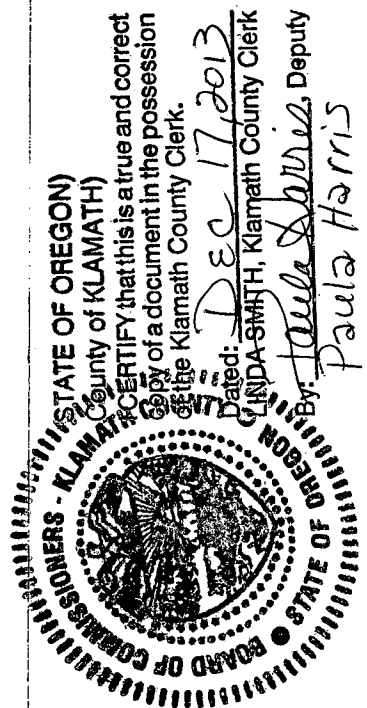 STATE OF OREGON)
County of KLAMATH)
I CERTIFY that this is a true and correct
copy of a document in the possession
of the Klamath County Clerk.
Dated: DEC 17, 2013
LINDA SMITH, Klamath County Clerk
By: Paula Harris, Deputy
Paula Harris
BOARD OF COMMISSIONERS - KLAMATH COUNTY
STATE OF OREGON